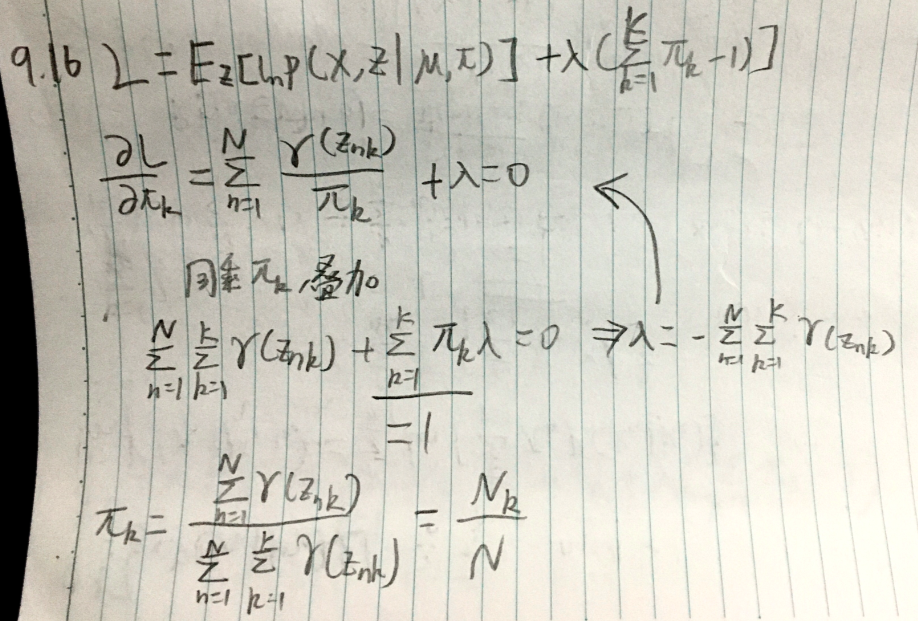 9.16 L = E_Z[ln p(X, Z | μ, π)] + λ(∑_{k=1}^{K} π_k - 1)]
∂L/∂π_k = ∑_{n=1}^{N} γ(z_{nk})/π_k + λ = 0
同乘 π_k, 叠加
∑_{n=1}^{N} ∑_{k=1}^{K} γ(z_{nk}) + ∑_{k=1}^{K} π_k λ = 0 ⇒ λ = -∑_{n=1}^{N} ∑_{k=1}^{K} γ(z_{nk})
= 1
π_k = ∑_{n=1}^{N} γ(z_{nk}) / ∑_{n=1}^{N} ∑_{k=1}^{K} γ(z_{nk}) = N_k/N